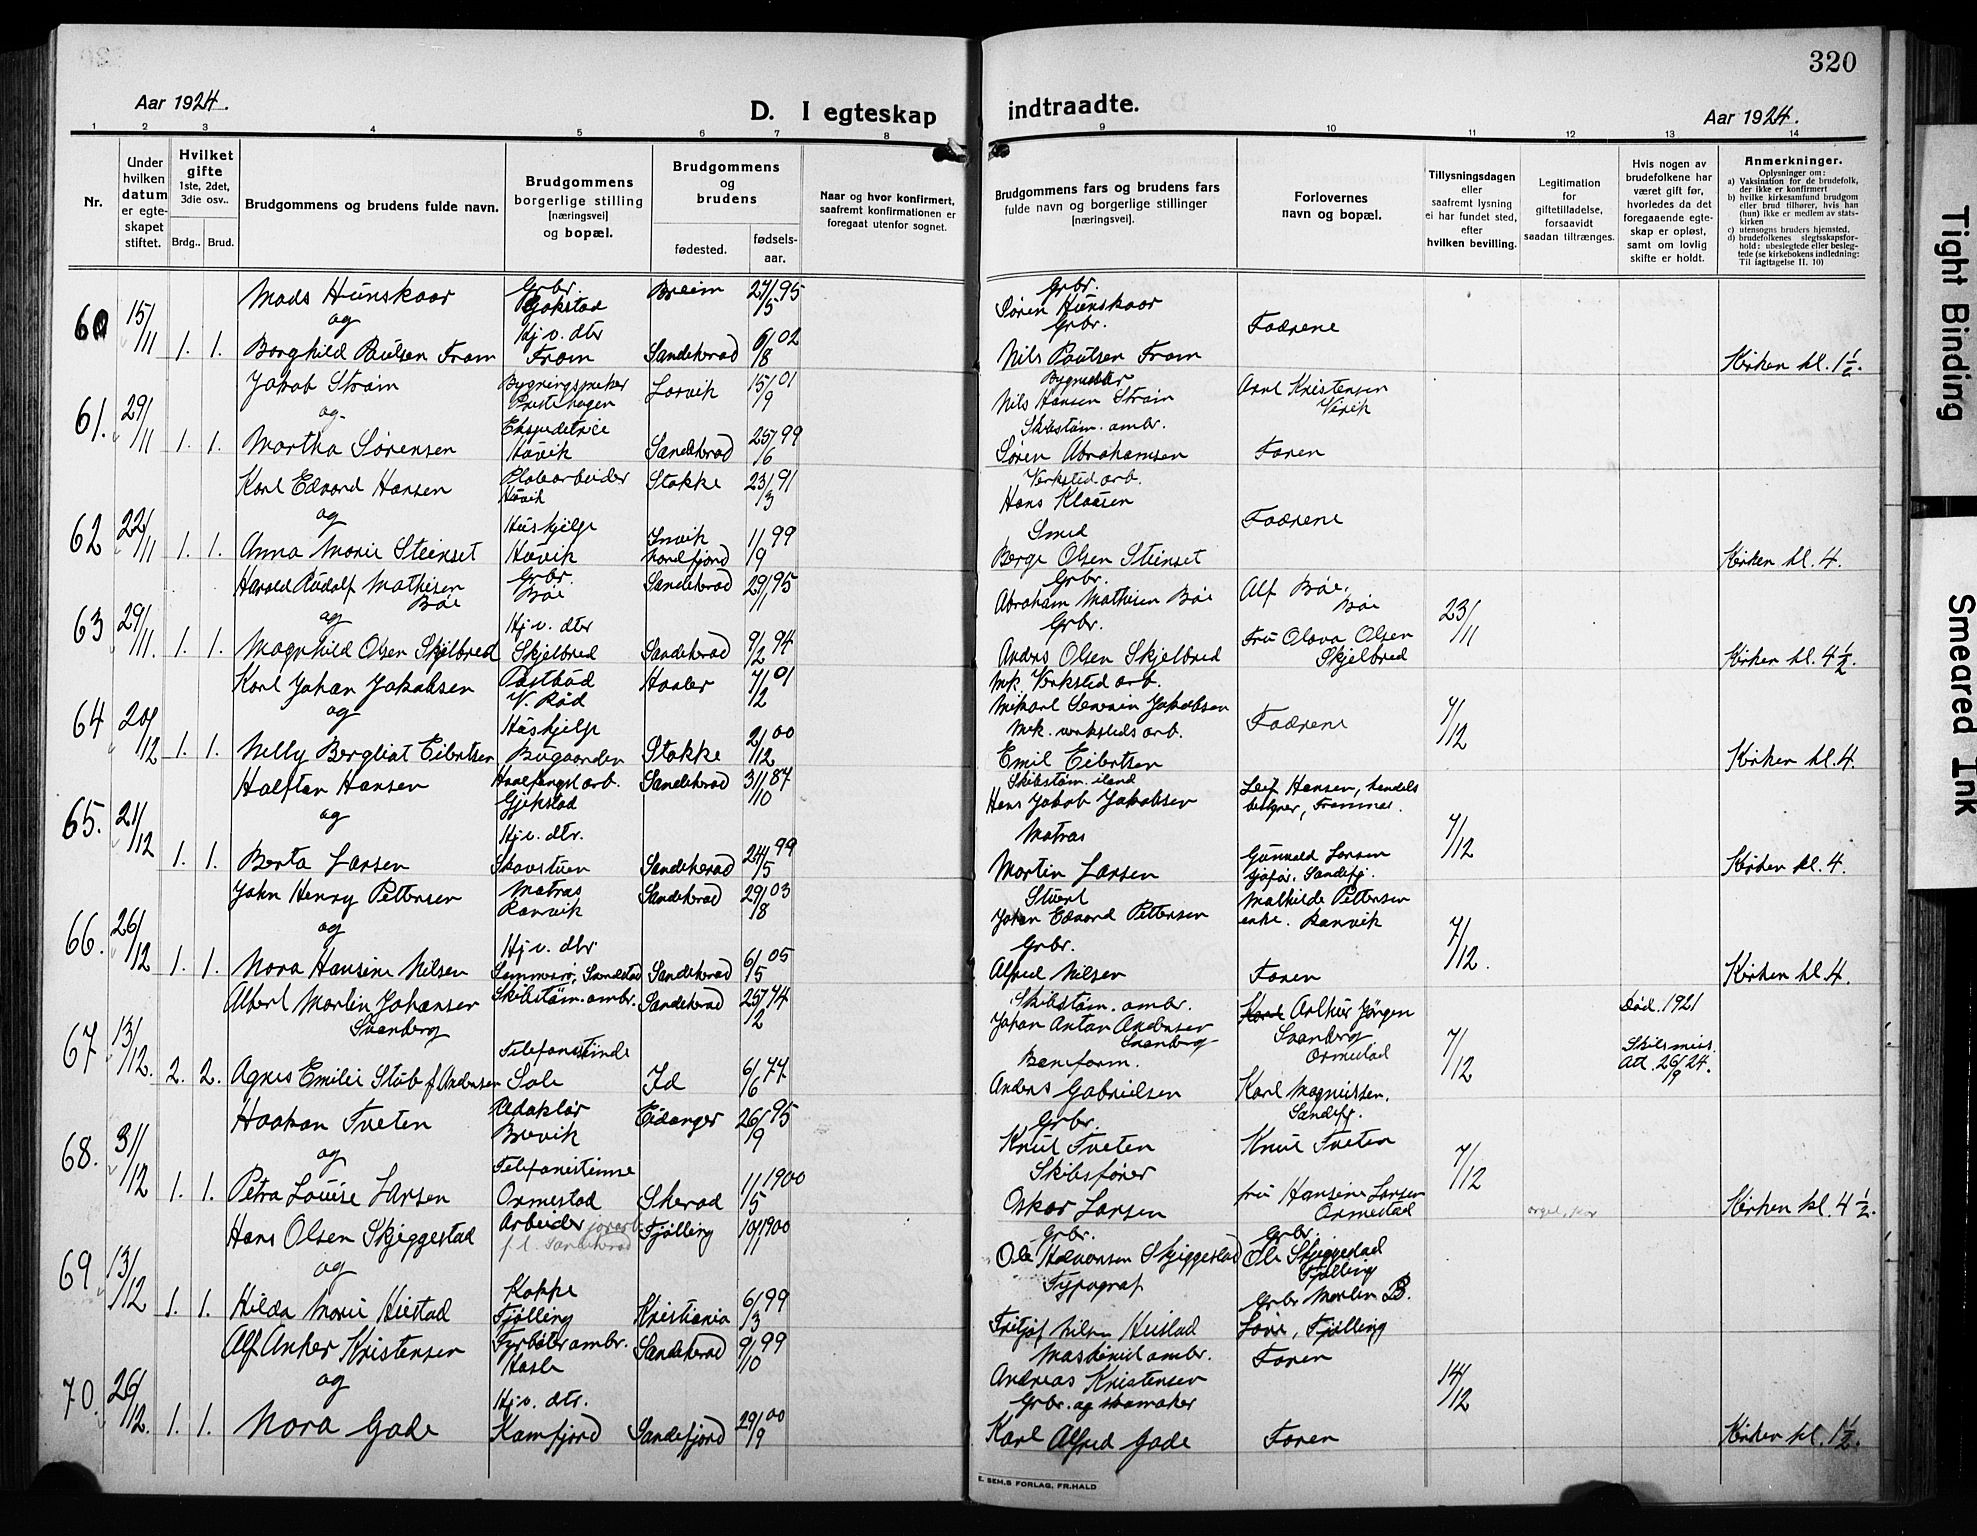 320
Aar 1924.
D. I egteskap
indtraadte.
Aar 1924.
1 2 3 4 5 6 7 8 9 10 11 12 13 14
Nr.
Under hvilken datum er egteskapet stiftet.
Hvilket gifte 1ste, 2det, 3die osv..
Brdg.. Brud.
Brudgommens og brudens fulde navn.
Brudgommens borgerlige stilling [næringsvei] og bopæl.
Brudgommens og brudens
fødested.
fødselsaar.
Naar og hvor konfirmert, saafremt konfirmationen er foregaat utenfor sognet.
Brudgommens fars og brudens fars fulde navn og borgerlige stillinger [næringsvei].
Forlovernes navn og bopæl.
Tillysningsdagen eller saafremt lysning ei har fundet sted, efter hvilken bevilling.
Legitimation for giftetilladelse, forsaavidt saadan tiltrænges.
Hvis nogen av brudefolkene har været gift før, hvorledes da det foregaaende egteskap er opløst, samt om lovlig skifte er holdt.
Anmerkninger.
Oplysninger om:
a) Vaksination for de brudefolk, der ikke er konfirmert
b) hvilke kirkesamfund brudgom eller brud tilhører, hvis han (hun) ikke er medlem av statskirken
c) utensogns bruders hjemsted.
d) brudefolkenes slegtsskapsforhold: ubeslegtede eller beslegtede (se kirkebokens indledning: Til iagttagelse II. 10)
60 15/11 1. 1. Mads Hunskaar og Borghild Paulsen Fram
Grbr. Gjokstad Breim 27/5 95
Hj.v. dtr Fram Sandeherad 6/8 02
Grbr. Søren Hunskaar
Grbr. Nils Paulsen Fram
Fædrene
Kirken kl. 1½.
61. 29/11 1. 1. Jakob Strøm og Martha Sørensen
Bygningssnekker Prestehagen Larvik 15/9 01
Ekspeditrice Haavik Sandeherad 25/6 99
Bygmester Nils Hansen Strøm
Skibstøm. ambr. Søren Abrahamsen
Aarl Kristensen Virik
Faren
62 22/11 1. 1. Karl Edvard Hansen og Anna Marie Steinset
Platearbeider Haavik Stokke 23/3 91
Hushjelp Haavik nordfjord 11/9 99
Verksted arb. Hans Klausen
Smed Berge Olsen Steinset
Fædrene
Kirken kl. 4.
63 29/11. 1. 1. Harald Rudolf Mathisen Bøe og Magnhild Olsen Skjelbred
Grbr. Bøe Sandeherad 29/11 95
Hj.v. dtr Skjelbred Sandeherad 9/2 94
Grbr. Abraham Mathisen Bøe
Grbr. Anders Olsen Skjelbred
Alf Bøe, Bøe
Fru Olava Olsen Skjelbred
23/11
Kirken kl. 4½.
64 20/12 1. 1. Karl Johan Jakobsen og Nelly Bergliot Eilertsen
Postbud V. Rød Haaler 7/2 01
Hushjelp Bugaarden Stokke 2/12 00
mk. Verksted arb. Mikael Severin Jakobsen
mek. verksteds arb. Emil Eilertsen
Fædrene
7/12
Kirken kl. 4.
65. 21/12 1. 1. Halftan Hansen og Berta Larsen
Hvalfangstarb. Gjøkstad Sandeherad 31/10 87
Hj.v. dtr. Skavstuen Sandeherad 24/5 99
Skibstøm. iland Hans Jakob Jakobsen
Matros Martin Larsen
Leif Hansen, handels betjener, Framnes
Gunvald Larsen sjøfar. Sandefj.
7/12
Kirken kl. 4.
66. 26/12 1. 1. John Henry Pettersen og Nora Hansine Nilsen
Matros Ranvik Sandeherad 29/8 03
Hj.v. dtr. Sandeherad 6/5 05
Stuert Johan Edvard Pettersen
Grbr. Alfred Nilsen
Mathilde Pettersen enke. Ranvik
Faren
7/12.
Kirken kl. 4.
67 13/12. 2. 2. Albert Martin Johansen Svanberg
Agnes Emilie Stub f. Andersen
Skibstøm. ambr. Sandeherad 25/2 74
Telefonistinde Sole Id 6/6 77
Skibstøm. ambr. Johan Antan Andersen Svanberg
Baneform. Anders Gabrielsen
Karl Arthur Jørgen Svanberg Ormestad
Karl Magnussen, Sandefj.
7/12
død. 1921
Skilsmiss. Att. 26/9 24.
68. 31/12 1. 1. Haakon Tveten og Petra Louise Larsen
Redaktør Brevik Eidanger 26/9 95
Telefonistinne Ormestad Skerad 11/5 1900
Grbr. Knut Tveten
Skibsfører Oskar Larsen
Knut Tveten
fru Hansine Larsen Ormestad
7/12
Kirken kl. 4½.
69 13/12 1. 1. Hans Olsen Skjeggestad og Hilda Marie Heistad
Arbeider Fjølling 10/11 1900
Kokke Fjølling Kristiania 6/3 99
Grbr. Ole Halvorsen Skjeggestad
Typograf Fritjof Nilsen Heistad
Grbr. Ole Skjeggestad Fjølling
Grbr Martin B. Løve, Fjølling
70. 26/12. 1. 1. Alf Anker Kristensen og Nora Gade
Fyrbøter ambr. Hasle Sandeherad 9/10 99
Hj.v. dtr. Kamfjord Sandefjord 29/9 00
Maskinist ambr. Andreas Kristensen
Grbr. og skomaker Karl Alfred Gade
Faren
Faren
14/12
Kirken kl. 1½.
E. SEM.S FORLAG, FR.HALD
Tight Binding
Smeared Ink